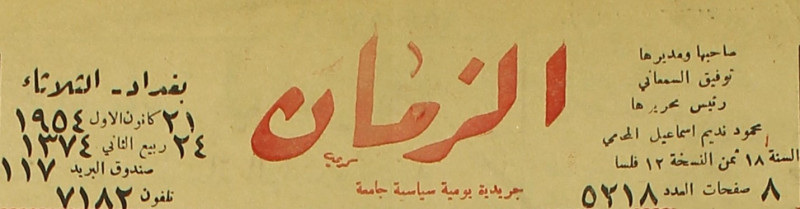 صاحبها ومديرها
توفيق السمعاني
رئيس تحريرها
محمود نديم اسماعيل المحامي
السنة ١٨ ثمن النسخة ١٢ فلسا
٨ صفحات العدد ٥٢١٨
الزمان
جريدة يومية سياسية جامعة
بغداد - الثلاثاء
٢١ كانون الاول ١٩٥٤
٢٤ ربيع الثاني ١٣٧٤
صندوق البريد ١١٧
تلفون ٧١٨٢